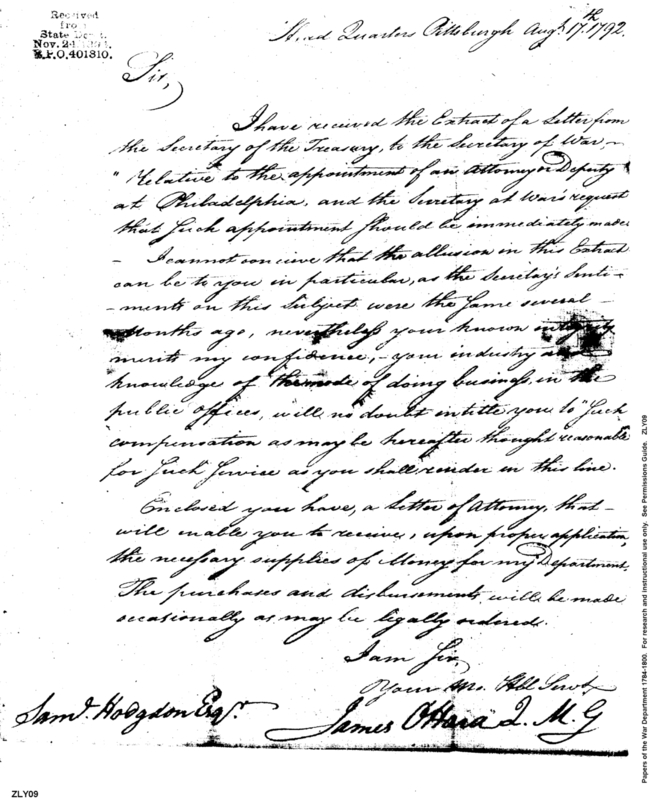 Received
from
State Dept.
Nov. 24
E.P.O. 401310.
Head Quarters Pittsburgh Augt. 17th. 1792.
Sir,
I have received the Extract of a Letter from
the Secretary of the Treasury, to the Secretary of War, –
"relative to the appointment of an Attorney or Deputy
at Philadelphia, and the Secretary at War's request
that Such appointment Should be immediately made
– I cannot concieve that the allusion in this Extract
can be to you in particular, as the Secretary's Senti-
-ments on this Subject were the Same several –
Months ago, nevertheless your known integrity
merits my confidence, – your industry and
knowledge of the mode of doing business, in the
public offices, will no doubt intitle you to "Such
compensation as may be hereafter thought reasonable"
for Such Service as you shall render in this line.
Enclosed you have, a Letter of Attorney, that –
will enable you to receive, upon proper application,
the necessary supplies of Money for my Department.
The purchases and disbursements, will be made
occasionally as may be legally ordered.
I am Sir,
Your Mo. Hbl Servt
Saml. Hodgdon Esqr.
James OHara Q. M. G
ZLY09
Papers of the War Department 1784-1800. For research and instructional use only. See Permissions Guide. ZLY09